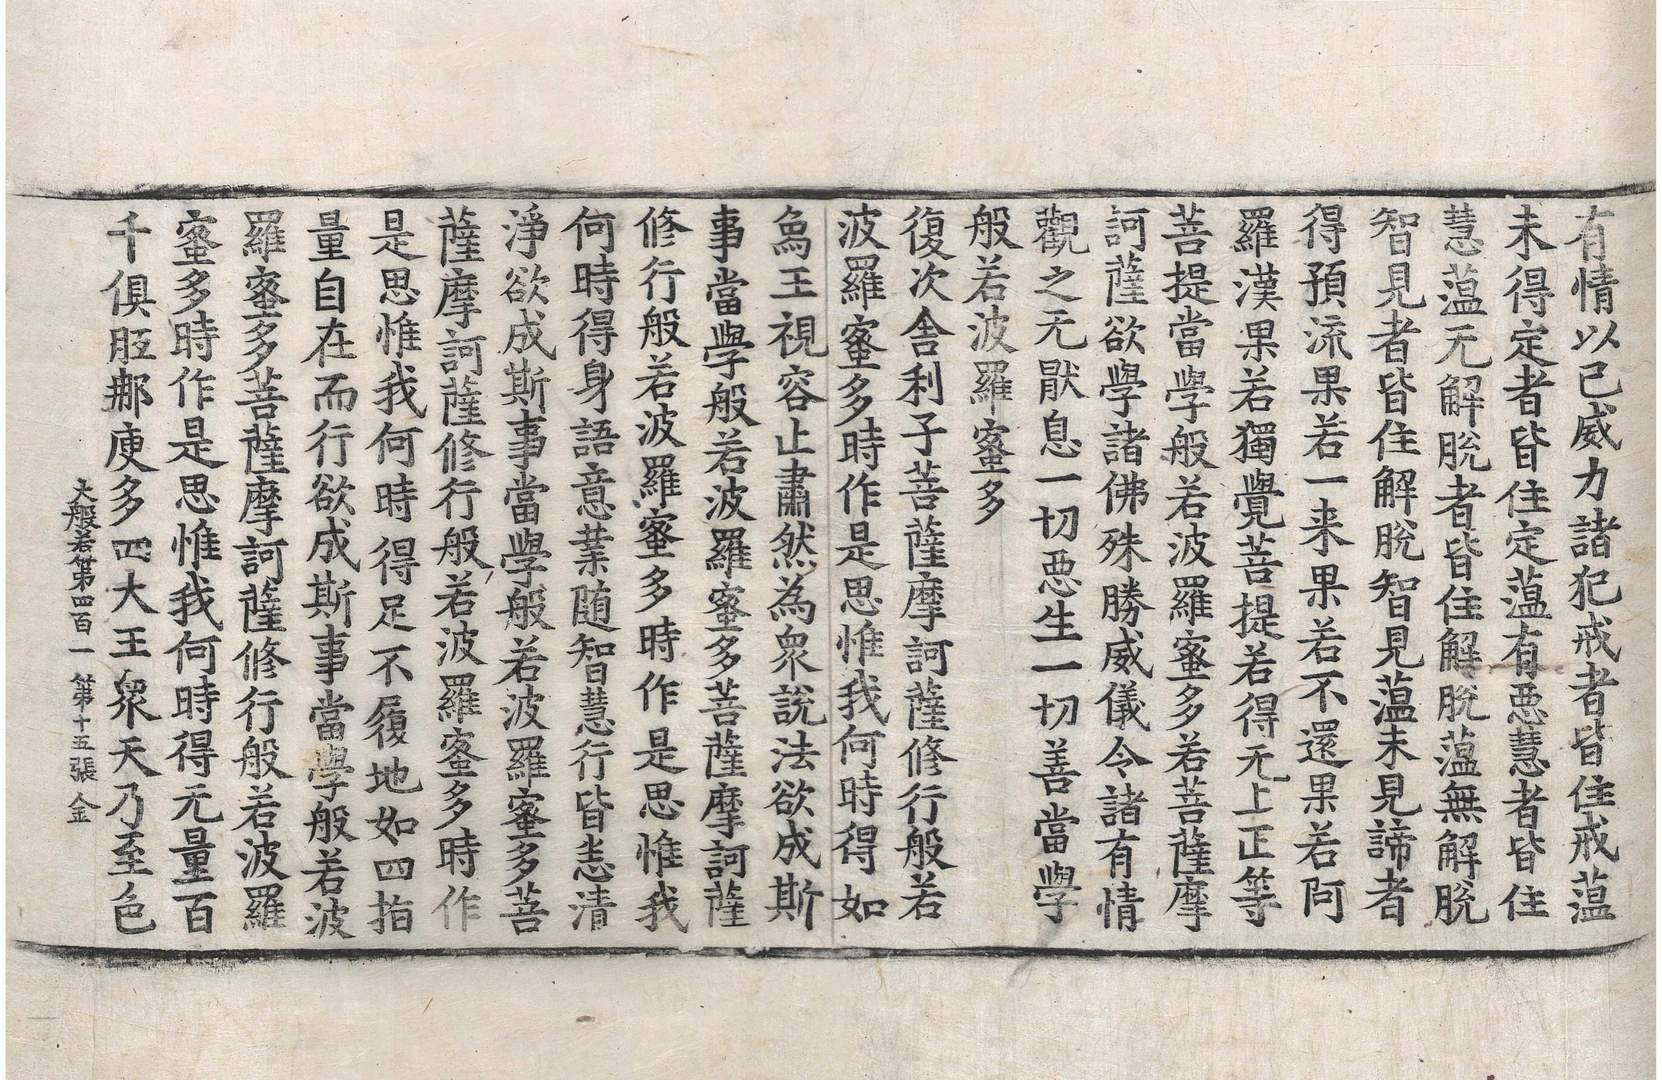 有情以己威力諸犯戒者皆住戒蕰
未得定者皆住定蕰有惡慧者皆住
慧蕰无解脫者皆住解脫蕰無解脫
智見者皆住解脫智見蕰未見諦者
得預流果若一来果若不還果若阿
羅漢果若獨覺菩提若得无上正等
菩提當學般若波羅蜜多若菩薩摩
訶薩欲學諸佛殊勝威儀令諸有情
觀之无猒息一切惡生一切善當學
般若波羅蜜多
復次舍利子菩薩摩訶薩修行般若
波羅蜜多時作是思惟我何時得如
爲王視容止肅然為衆說法欲成斯
事當學般若波羅蜜多菩薩摩訶薩
修行般若波羅蜜多時作是思惟我
何時得身語意業隨智慧行皆悉清
淨欲成斯事當學般若波羅蜜多菩
薩摩訶薩修行般若波羅蜜多時作
是思惟我何時得足不履地如四指
量自在而行欲成斯事當學般若波
羅蜜多菩薩摩訶薩修行般若波羅
蜜多時作是思惟我何時得无量百
千俱胝那庾多四大王衆天乃至色
大般若第四百一 第十五張 金